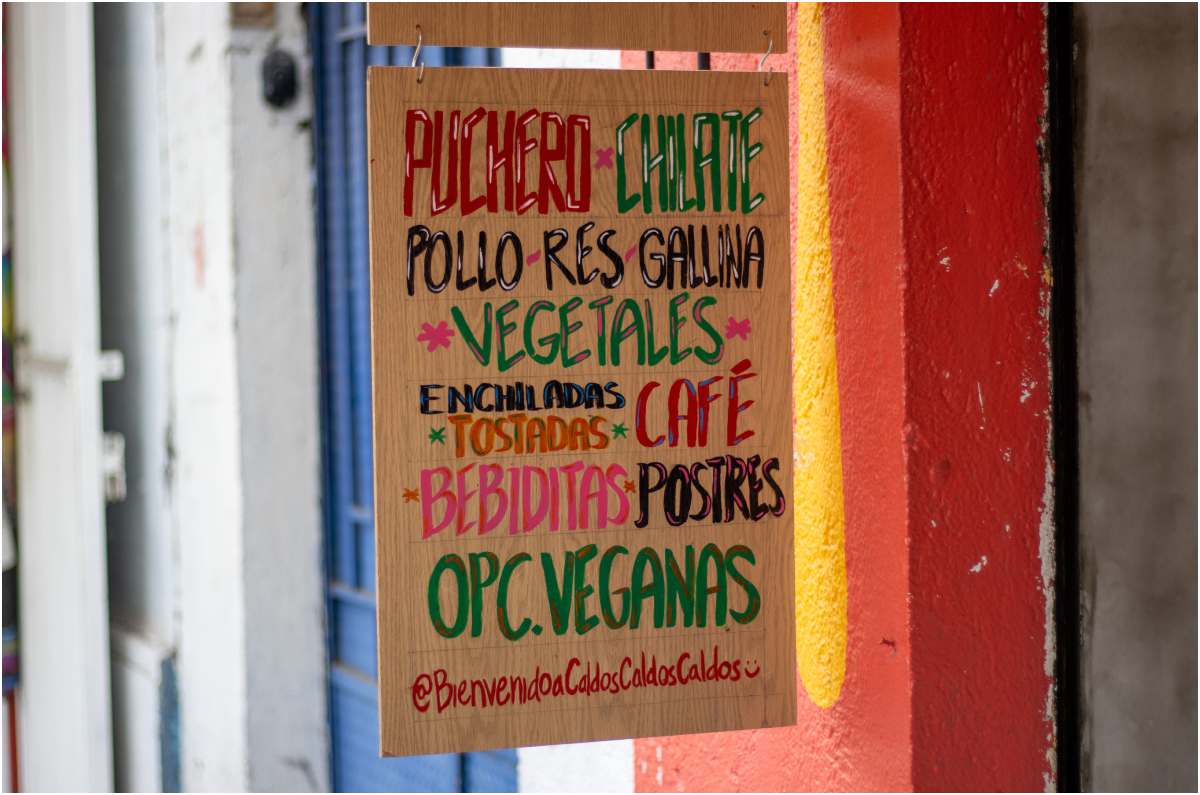 PUCHERO * CHILATE
POLLO-RES-GALLINA
*VEGETALES*
ENCHILADAS
*TOSTADAS*
CAFÉ
*BEBIDITAS*POSTRES
OPC. VEGANAS
@BienvenidoaCaldosCaldosCaldos